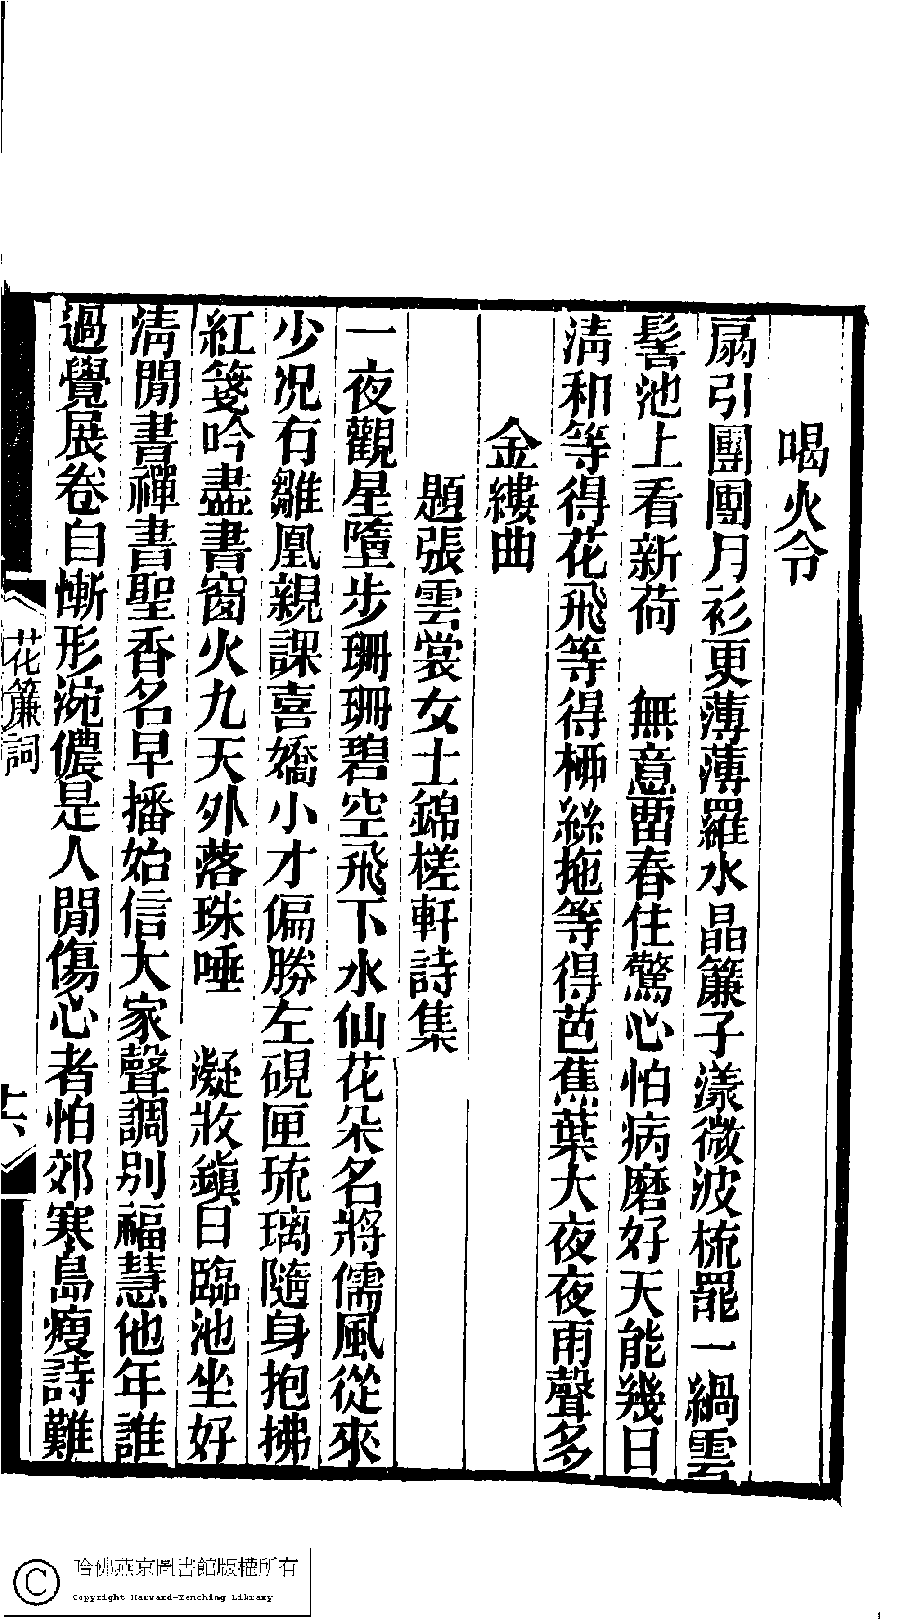 喝火令
扇引團團月衫更薄薄羅水晶簾子漾微波梳罷一緺雲
髻池上看新荷　無意畱春住驚心怕病磨好天能幾日
淸和等得花飛等得柳絲拖等得芭蕉葉大夜夜雨聲多
金縷曲
題張雲裳女士錦槎軒詩集
一夜觀星墮步珊珊碧空飛下水仙花朵名將儒風從來
少况有雛凰親課喜嬌小才偏勝左硯匣琉璃隨身抱拂
紅箋吟盡書窗火九天外落珠唾　凝妝鎭日臨池坐好
淸閒書禪書聖香名早播始信大家聲調別福慧他年誰
過覺展卷自慚形涴儂是人閒傷心者怕郊寒島瘦詩難
花簾詞
十六
哈佛燕京圖書館版權所有
Copyright Harvard-Yenching Library